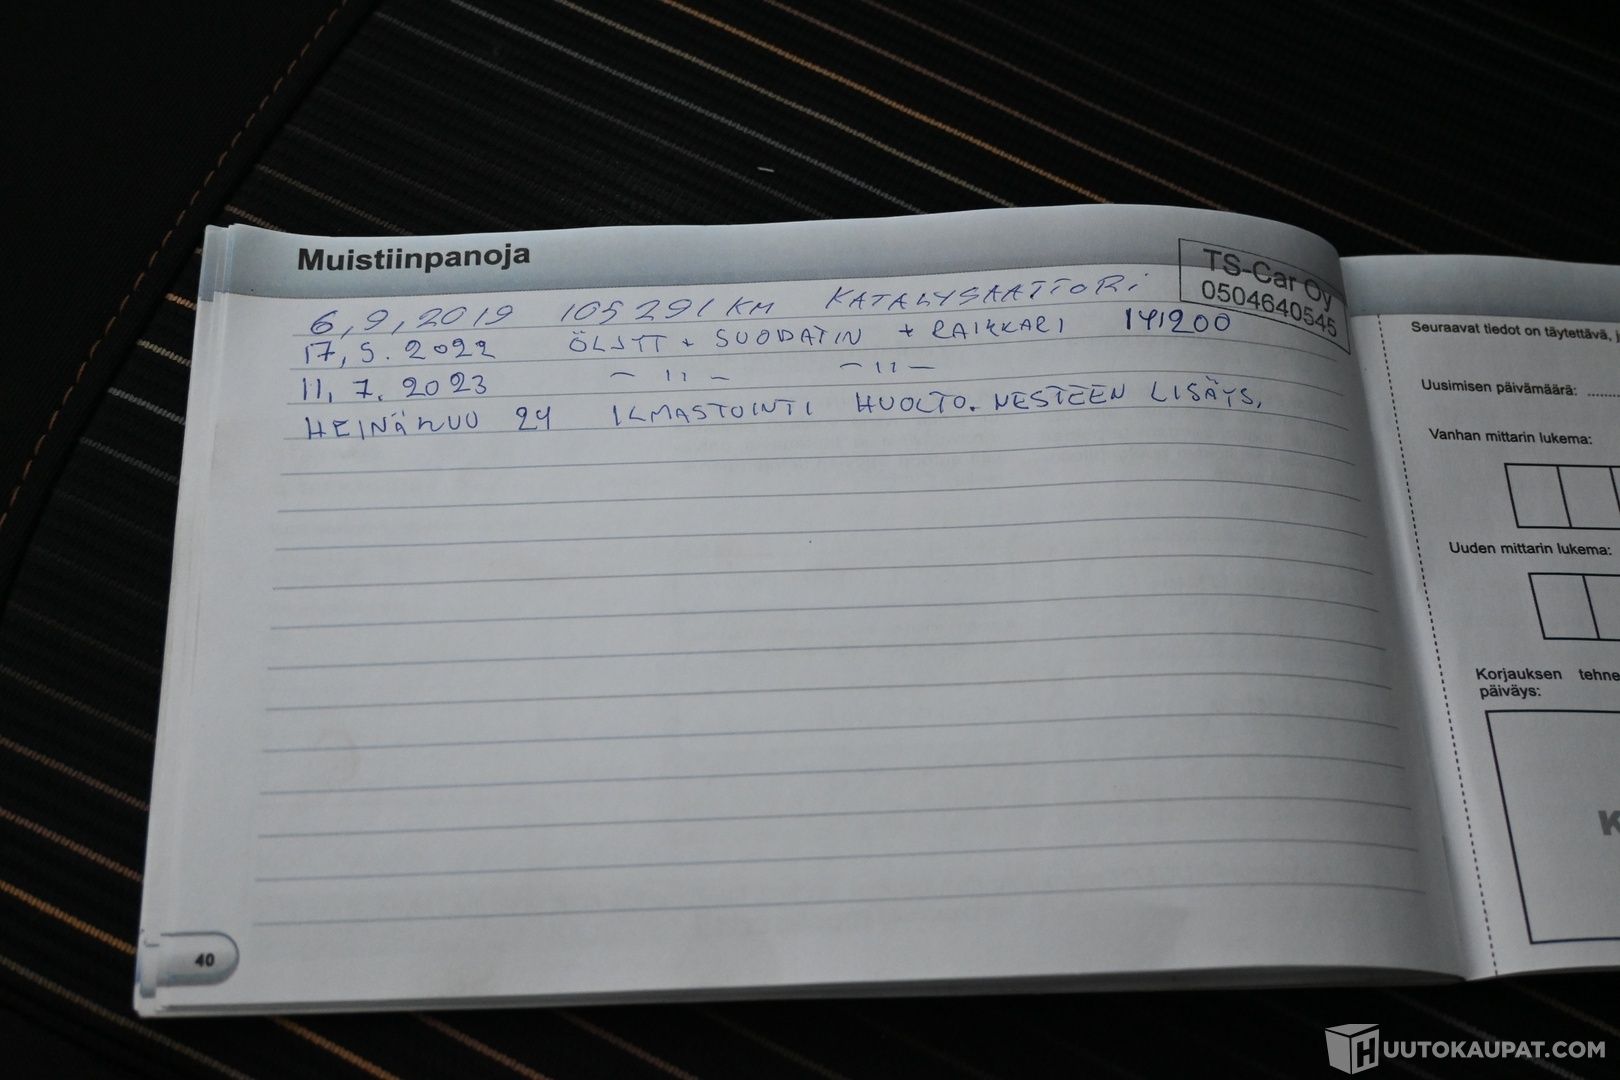 Muistiinpanoja
TS-Car Oy
0504640545
6,9,2019 105291 KM KATALYSAATTORi
17,5.2022 ÖLJYT + SUODATIN + RAIKKARI 141200
11,7.2023 – 11 – – 11 –
HEINÄKUU 24 ILMASTOINTI HUOLTO. NESTEEN LISÄYS,
40
Seuraavat tiedot on täytettävä, j
Uusimisen päivämäärä: ........
Vanhan mittarin lukema:
Uuden mittarin lukema:
Korjauksen tehne
päiväys:
K
HUUTOKAUPAT.COM